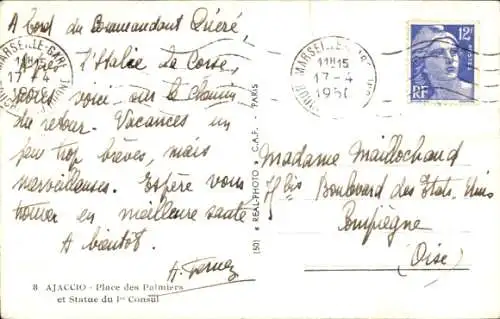 A bord du Commandant Quéré,
Après l'Italie la Corse,
nous voici sur le chemin
du retour. Vacances un
peu trop brèves, mais
merveilleuses. Espère vous
trouver en meilleure santé
A bientôt.
8 AJACCIO - Place des Palmiers
et Statue du 1er Consul
(50) REAL-PHOTO C.A.F. - PARIS
MARSEILLE-GARE
11H15
17-4
MARSEILLE-GARE
11H15
17-4
195
12F
POSTES
RF
Madame Maillochaud
bis Boulevard des Etats-Unis
Compiègne
(Oise)